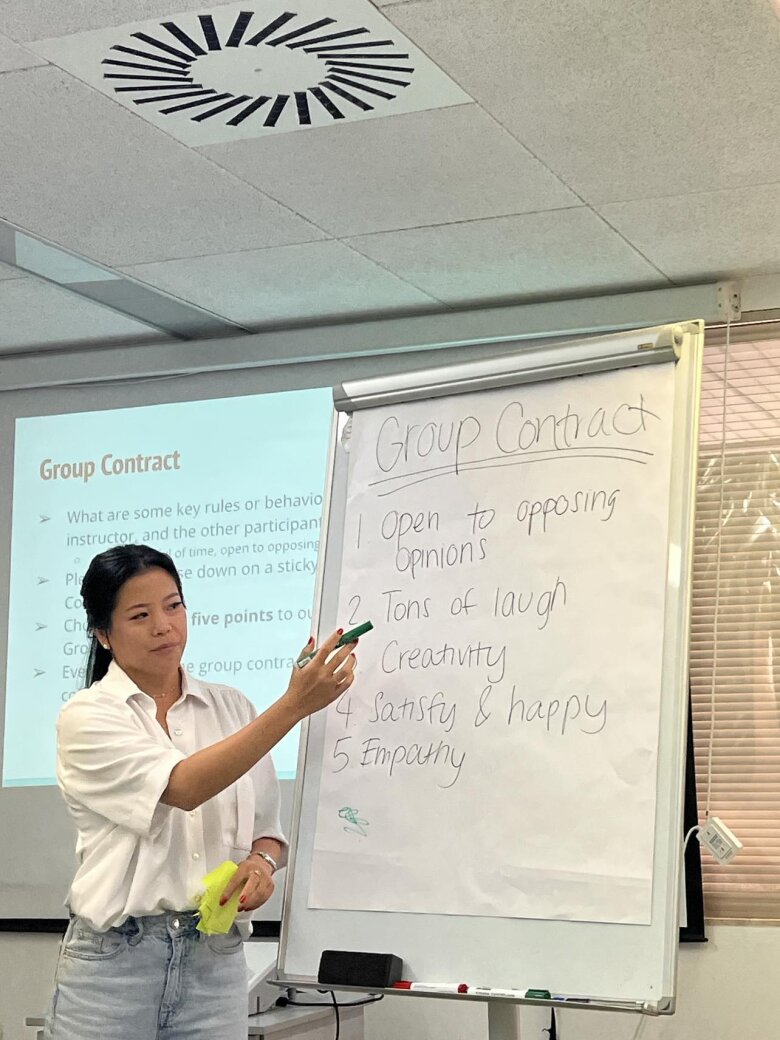 Group Contract
➢ What are some key rules or behavio
instructor, and the other participant
of time, open to opposing
se down on a sticky
five points to ou
Gro
Eve the group contra
Group Contract
1 Open to opposing
opinions
2 Tons of laugh
Creativity
4 Satisfy & happy
5. Empathy